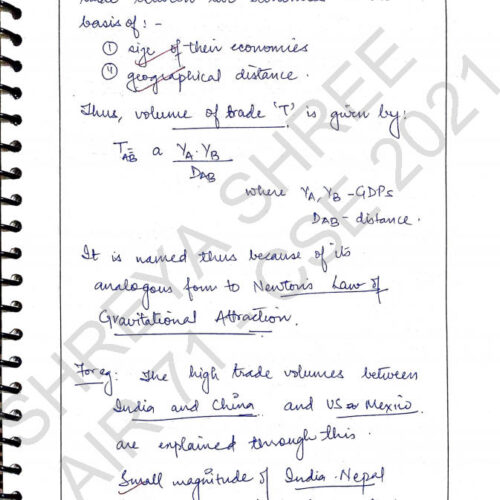 basis of : -
① size of their economies
② geographical distance.
Thus, volume of trade 'T' is given by:
T_AB = a Y_A . Y_B / D_AB
where Y_A, Y_B - GDPs
D_AB - distance.
It is named thus because of its
analogous form to Newton's Law of
Gravitational Attraction.
For eg: The high trade volumes between
India and China and US & Mexico
are explained through this.
Small magnitude of India-Nepal
SHREYA SHREE
AIR 71 - CSE 2021